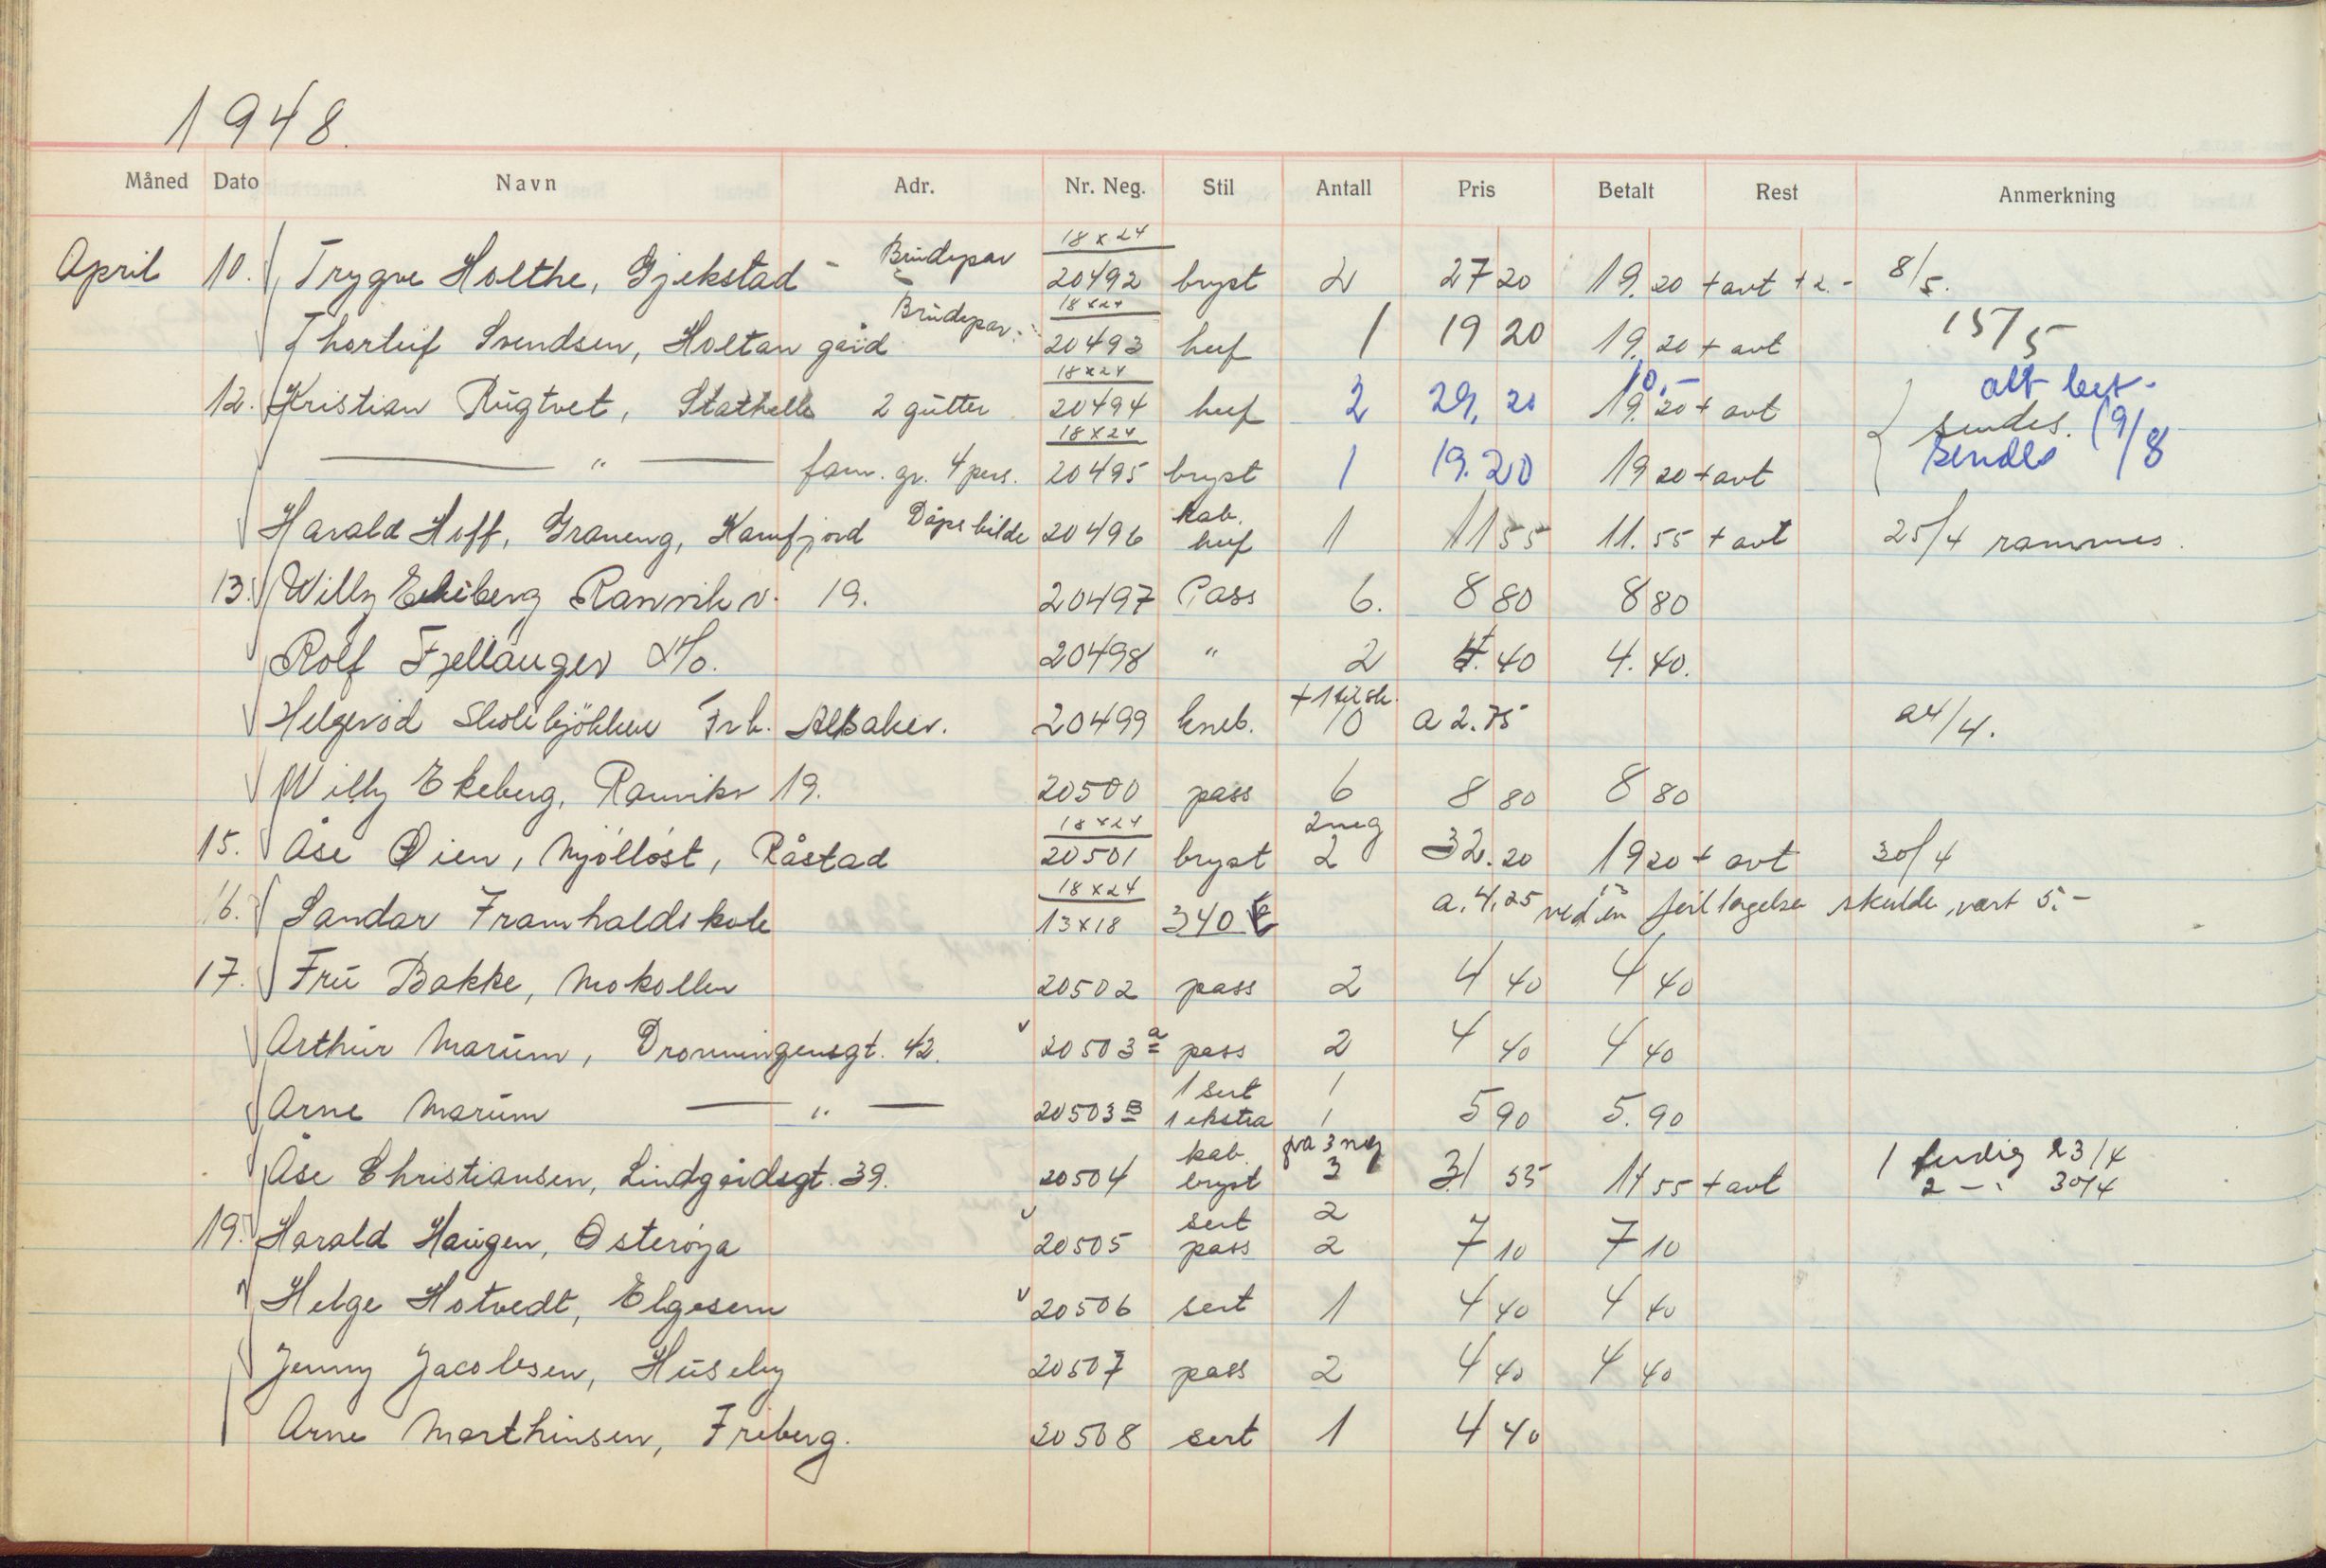 1948.
Måned Dato Navn Adr. Nr. Neg. Stil Antall Pris Betalt Rest Anmerkning
18 x 24
April 10. Trygve Holthe, Gjekstad - Brudepar 20492 bryst 2 27 20 19. 20 + avt + 2.- 8/5.
18 x 24
Thorleif Svendsen, Holtan gård Brudepar. 20493 huf 1 19 20 19. 20 + avt 15/5
18 x 24 10.- alt bet.
12. Kristian Rugtvet, Stathelle 2 gutter 20494 huf 2 29. 20 19. 20 + avt sendes. 19/8
18 x 24
— " — fam. gr. 4 pers. 20495 bryst 1 19.20 19 20 + avt sendes
kab.
Harald Hoff, Graneng, Kamfjord Dåpsbilde 20496 huf 1 11 55 11. 55 + avt 25/4 rammes.
13. Willy Ekeberg Ranvik v. 19. 20497 Pass 6. 8 80 8 80
Rolf Fjellanger 20498 " 2 4. 40 4. 40.
+ 1 til sk.
Helgerød Skolekjøkken Frk. Albaker. 20499 kneb. 10 a 2.75 24/4.
Willy Ekeberg, Ranvikv 19. 20500 pass 6 8 80 8 80
18 x 24 2 neg
15. Åse Øien, Mjølløst, Råstad 20501 bryst 2 32. 20 19 20 + avt 30/4
18 x 24
16. Sandar Framhaldskole 13 x 18 340 a. 4,25 ved en feiltagelse skulde vært 5.-
17. Fru Bakke, Mokollen 20502 pass 2 4 40 4 40
Arthur Marum, Dronningensgt. 42. 20503 a pass 2 4 40 4 40
1 sert 1
Arne Marum — " — 20503 B 1 ekstra 1 5 90 5. 90
kab. fra 3 neg 1 ferdig 23/4
Åse Christiansen, Lindgårdsgt. 39. 20504 bryst 3 31 55 11 55 + avt 2 — " 30/4
sert 2
19. Harald Haugen, Østerøya 20505 pass 2 7 10 7 10
Helge Hotvedt, Elgesem 20506 sert 1 4 40 4 40
Jenny Jacobsen, Huseby 20507 pass 2 4 40 4 40
Arne Marthinsen, Friberg. 20508 sert 1 4 40